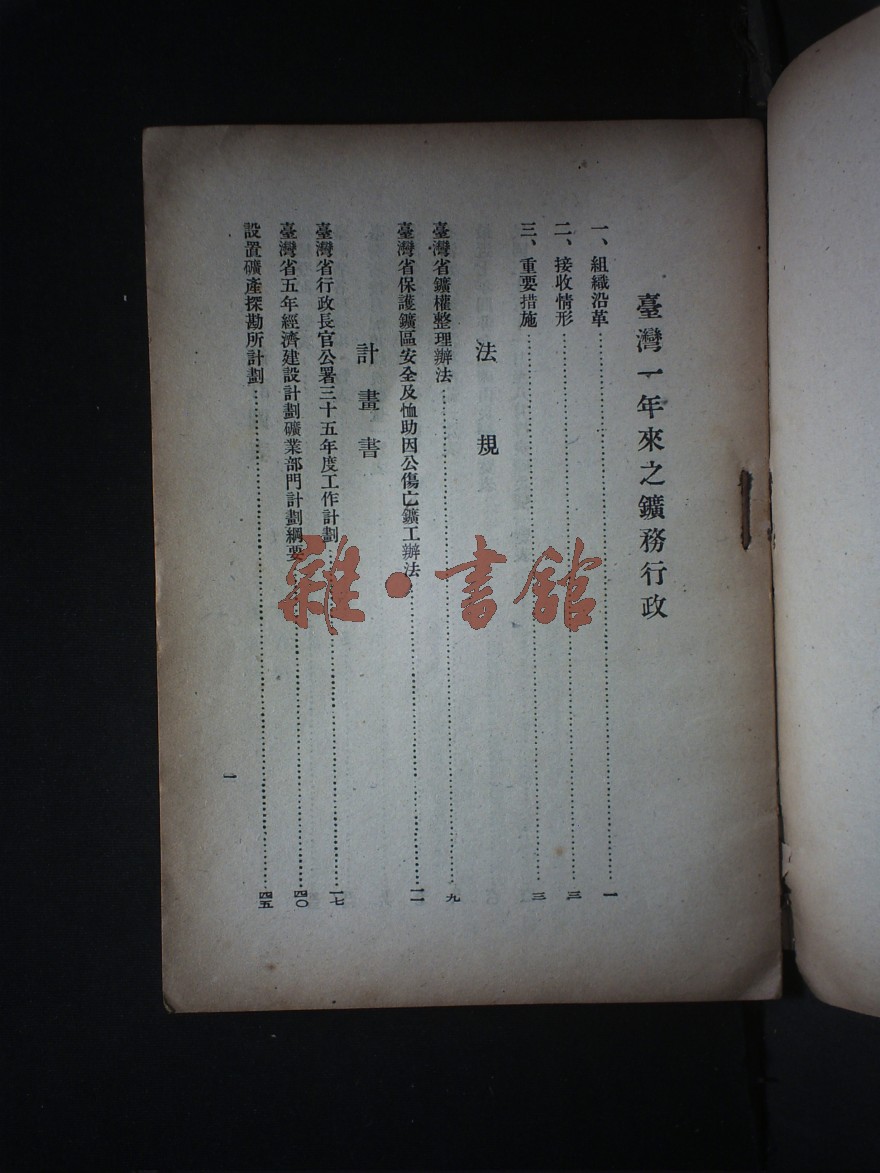 臺灣一年來之鑛務行政
一、組織沿革……一
二、接收情形……三
三、重要措施……三
法規
臺灣省鑛權整理辦法……九
臺灣省保護鑛區安全及恤助因公傷亡鑛工辦法……一一
計畫書
臺灣省行政長官公署三十五年度工作計劃……一七
臺灣省五年經濟建設計劃礦業部門計劃綱要……四〇
設置礦產探勘所計劃……四五
一
雜·書館